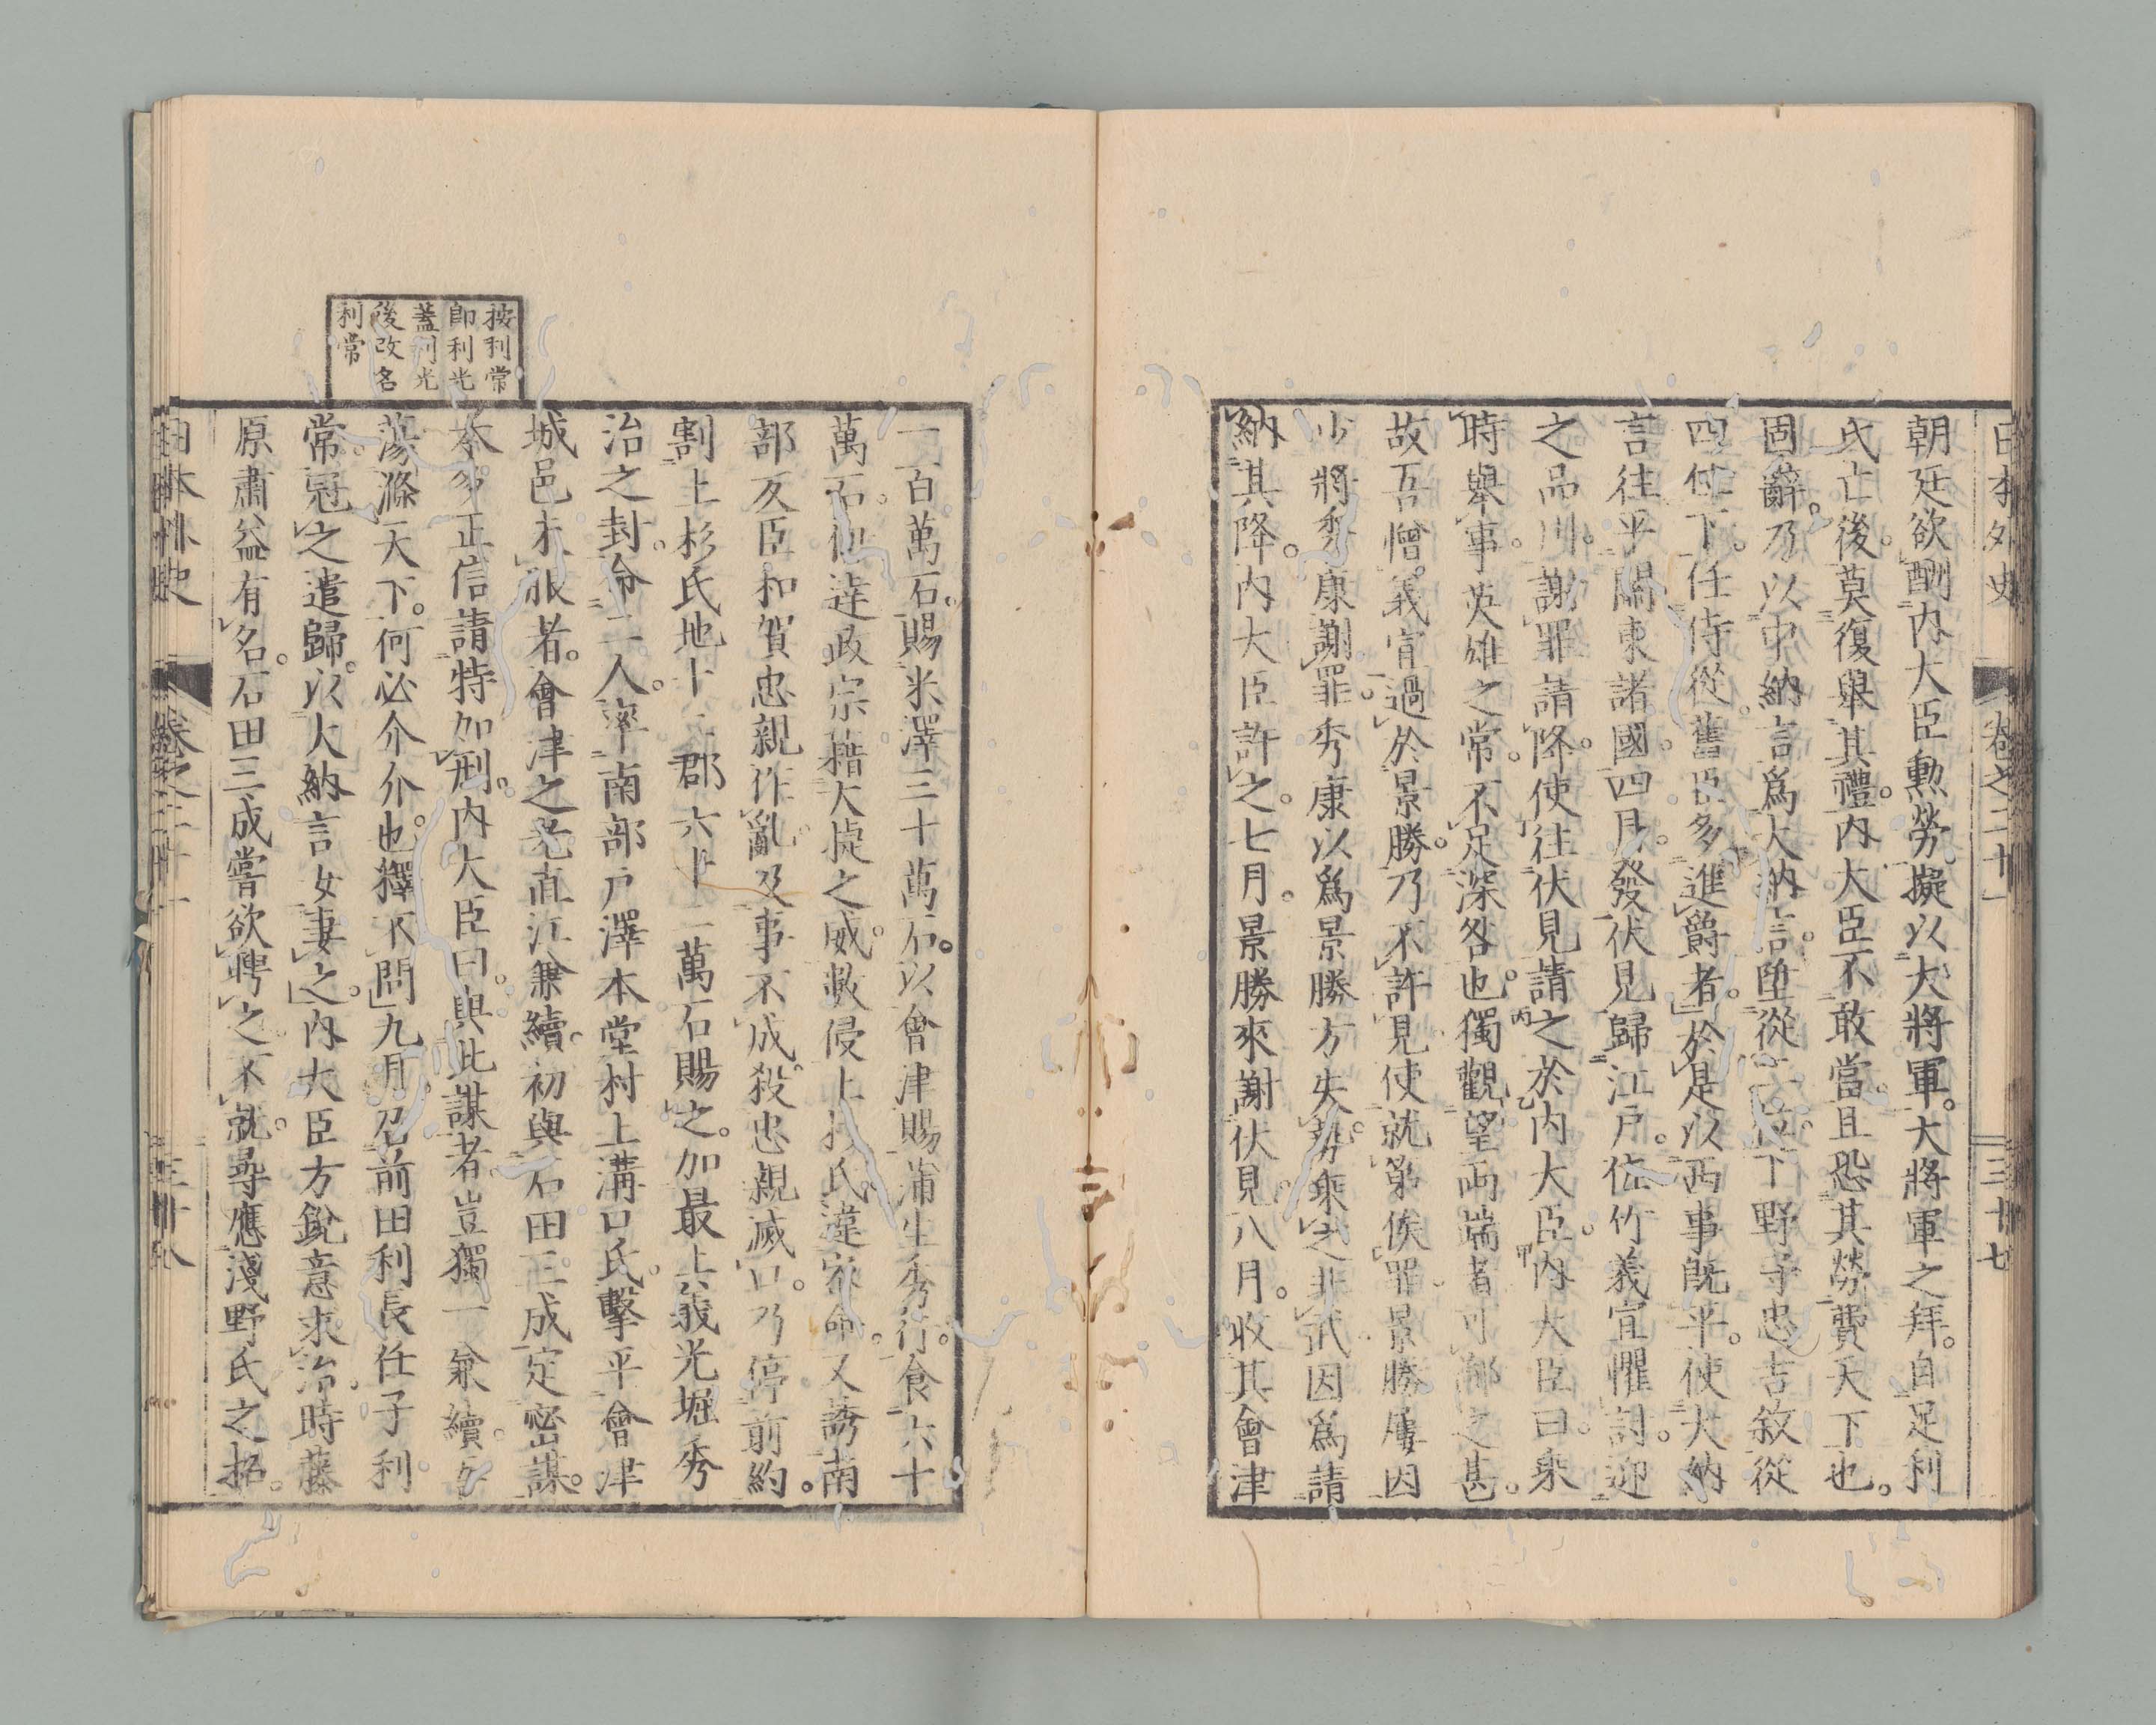 日本外史 卷之二十一 三十七
朝廷欲酬內大臣勲勞。擬以大將軍。大將軍之拜。自足利
氏亡後。莫復舉其禮。內大臣不敢當。且恐其勞費天下也。
固辭。乃以中納言爲大納言。陞從二位。下野守忠吉敘從
四位下。任侍從。舊臣多進爵者」於是以西事既平。使大納
言往乎關東諸國。四月。發伏見歸江戸。佐竹義宣懼討。迎
之品川。謝罪請降。使往伏見請之於內大臣。內大臣曰。衆
時舉事。英雄之常。不足深咎也。獨觀望兩端者可鄙之甚。
故吾憎義宣過於景勝。乃不許見。使就第俟罪。景勝屢因
少將秀康謝罪。秀康以爲景勝方失勢。乘之非武。因爲請
納其降。內大臣許之。七月。景勝來謝伏見。八月。收其會津
一百萬石。賜米澤三十萬石。以會津賜蒲生秀行。食六十
萬石。伊達政宗藉大捷之威。數侵上杉氏。違家命。又誘南
部叛臣和賀忠親作亂。及事不成。殺忠親滅口。乃停前約。
割上杉氏地十二郡六十二萬石賜之。加最上義光堀秀
治之封。令二人率南部戸澤本堂村上溝口氏。擊平會津
城邑未服者。會津之老直江兼續。初與石田三成定密謀。
本多正信請特加刑。內大臣曰。與此謀者豈獨一兼續。
蕩滌天下。何必介介也。釋不問」九月。召前田利長任子利
常。冠之遣歸。以大納言女妻之」內大臣方銳意求治。時藤
原肅益有名。石田三成嘗欲聘之。不就。尋應淺野氏之招。
按利常
卽利光
蓋利光
後改名
利常
日本外史 卷之二十一 三十八